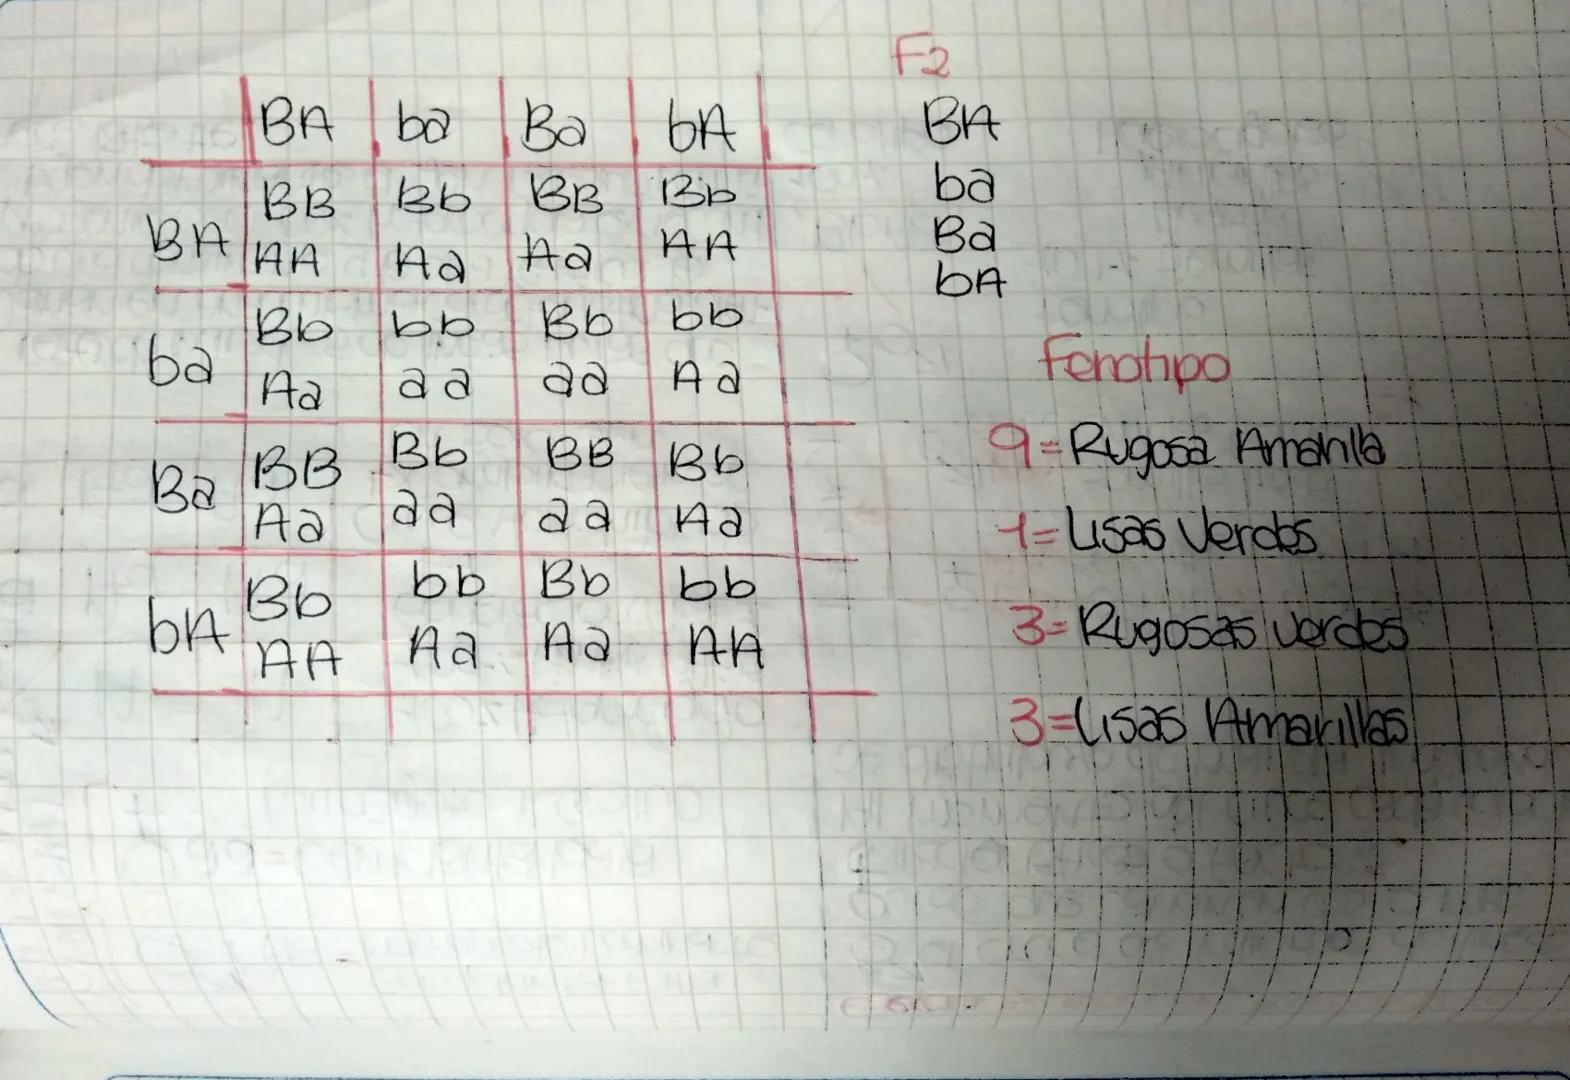 BA ba Ba bA
BA BB Bb BB Bb
AA Aa Aa AA
ba Bb bb Bb bb
Aa aa aa Aa
Ba BB Bb BB Bb
Aa aa aa Aa
bA Bb bb Bb bb
AA Aa Aa AA
F2
BA
ba
Ba
bA
Fenotipo
9= Rugosa Amarilla
1= Lisas Verdes
3= Rugosas verdes
3= Lisas Amarillas